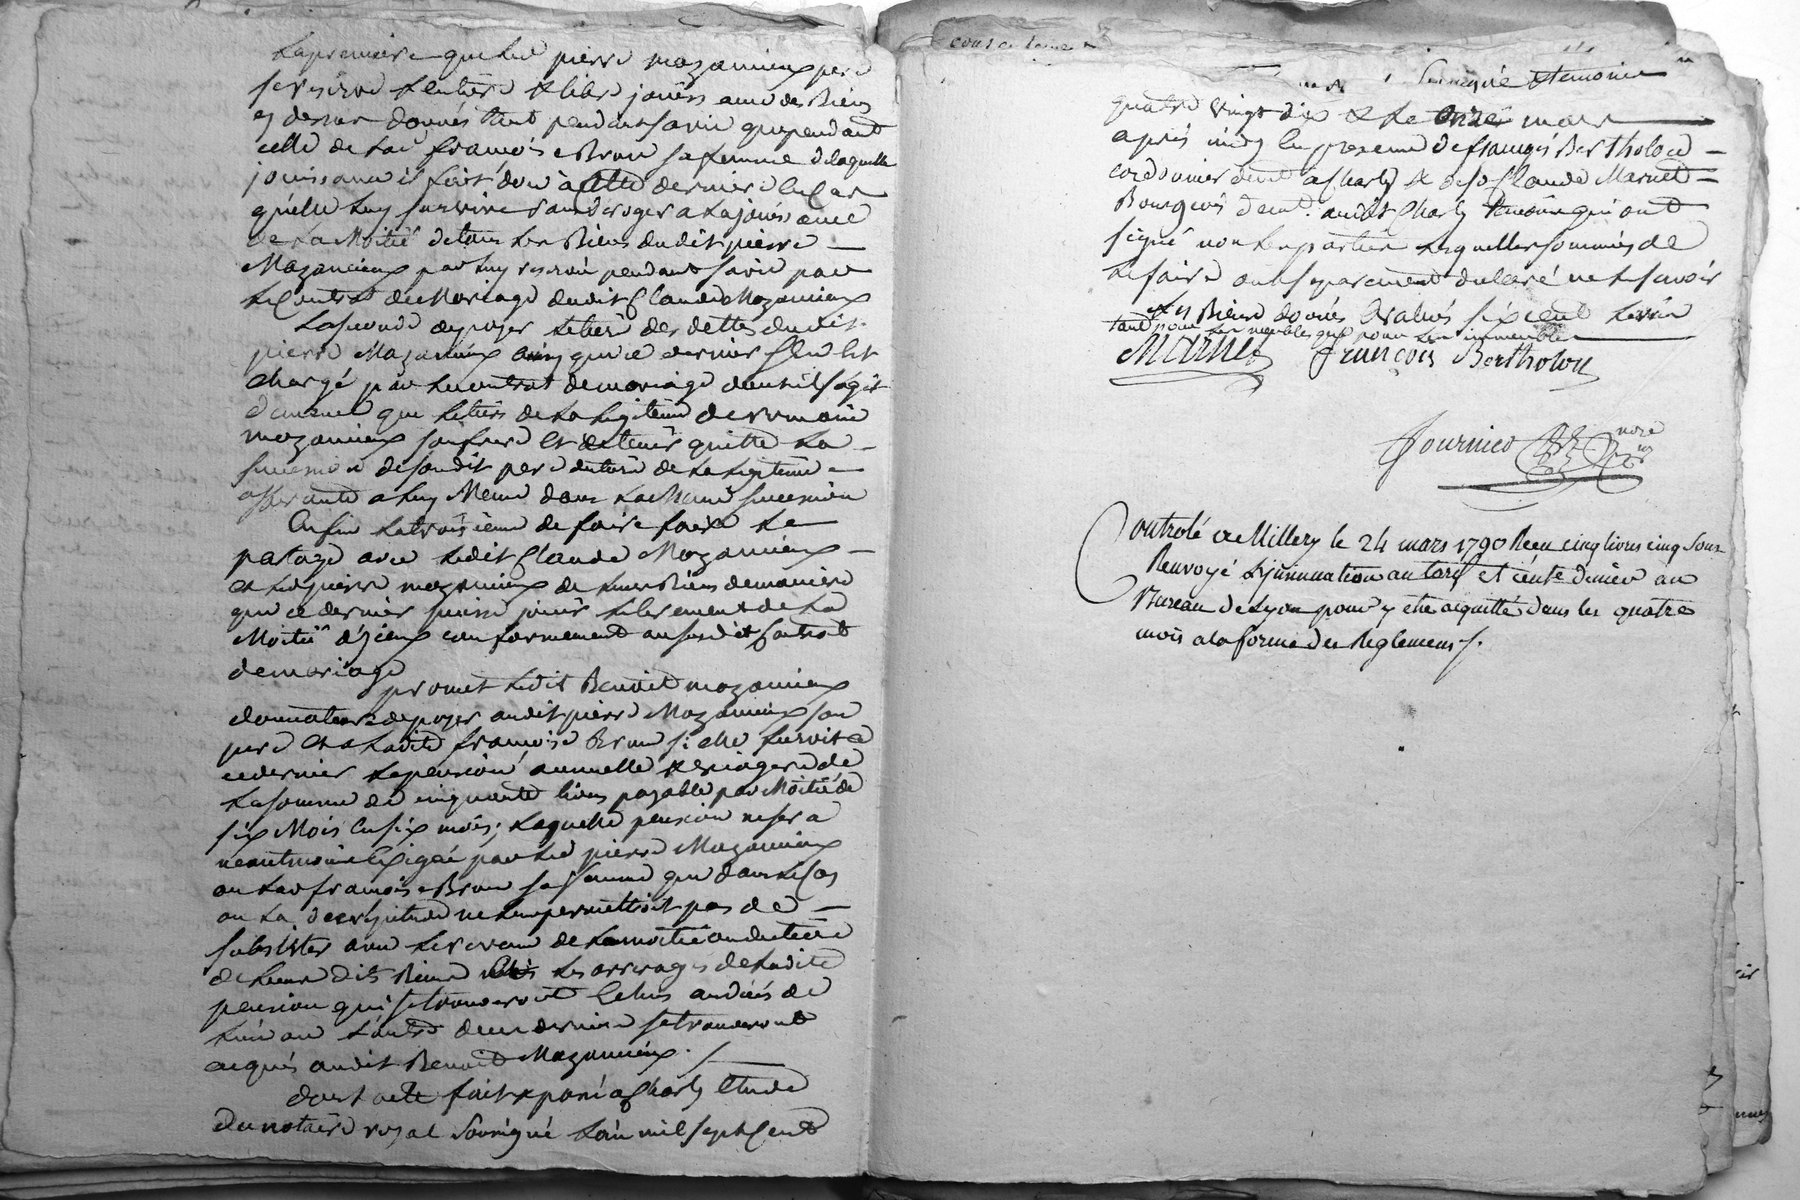 La premiere que led pierre mazancieux pere
se reserve l'entiere & libre jouissance des Biens
cy dessus donnés tant pendant sa vie que pendant
celle de lad françoise Brun sa femme de laquelle
jouissance il fait don à cette derniere en cas
qu'elle luy survive sans deroger a la jouissance
de La Moitié de tous les Biens dudit pierre
Mazancieux par luy reservée pendant sa vie par
le Contrat de Mariage dudit Claude Mazancieux
La seconde de payer le tiers des dettes dudit
pierre Mazancieux ainsy que ce dernier en est
chargé par le contrat de mariage dont il s'agit
de meme que le tiers de la legitime de
mazancieux son frere et de tenir quitte la
succession de sondit pere du tiers de la legitime
afferante a luy Meme dans la Meme succession
Enfin la troisieme de faire faire le
partage avec ledit Claude Mazancieux
et led pierre mazancieux de leurs Biens de maniere
que ce dernier puisse jouir librement de la
Moitié d'iceux conformement au susdit Contrat
de mariage
promet ledit Benoit mazancieux
donataire de payer audit pierre Mazancieux son
pere et a ladite françoise Brun si elle survit a
ce dernier la pension annuelle & viagere de
la somme de cinquante livres payable par Moitié de
six Mois en six mois; laquelle pension ne sera
neantmoins Exigée par led pierre Mazancieux
ou lad françoise Brun sa femme que dans le Cas
ou la decrepitude ne leur permettroit pas de
subsister avec le revenu de la moitié ou du tiers
de leurs dits Biens les arrerages de ladite
pension qui se trouveront Echus au déces de
l'un ou l'autre deux dernier se trouveront
acquis audit Benoit Mazancieux.
dont acte fait & passé a Charly Etude
du notaire royal soussigné l'an mil sept Cent
quatre vingt dix & le onze mars
après midy En presence de françois Bertholon
cordonnier demt a Charly & de sr Claude Marnet
Bourgeois demt. audit Charly temoins qui ont
signé non les parties lesquelles sommées de
le faire ont separement declaré ne le savoir
les Biens donnés Evalués six cent livres
tant pour les meubles que pour les immeubles
Marnet françois Bertholon
fournier nore
Controlé a Millery le 24 mars 1790 Reçu cinq livres cinq Sous
Renvoyé l'jnsinuation au tarif et centie denier au
Bureau de Lyon pour y etre acquitté dans les quatre
mois a la forme des Reglemens